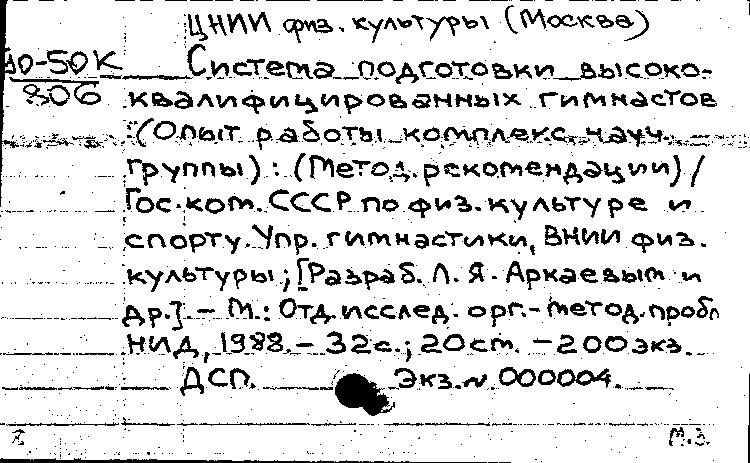 ЦНИИ физ. культуры (Москва)
90-50К
806
Система подготовки высоко-
квалифицированных гимнастов
: (Опыт работы комплекс. науч.
группы) : (Метод. рекомендации) /
Гос. ком. СССР по физ. культуре и
спорту. Упр. гимнастики, ВНИИ физ.
культуры; [Разраб. Л. Я. Аркаевым и
др.]. - М.: Отд. исслед. орг.-метод. пробл
НИД, 1988. - 32 с.; 20 см. - 200 экз.
ДСП. Экз. № 000004.
М.З.